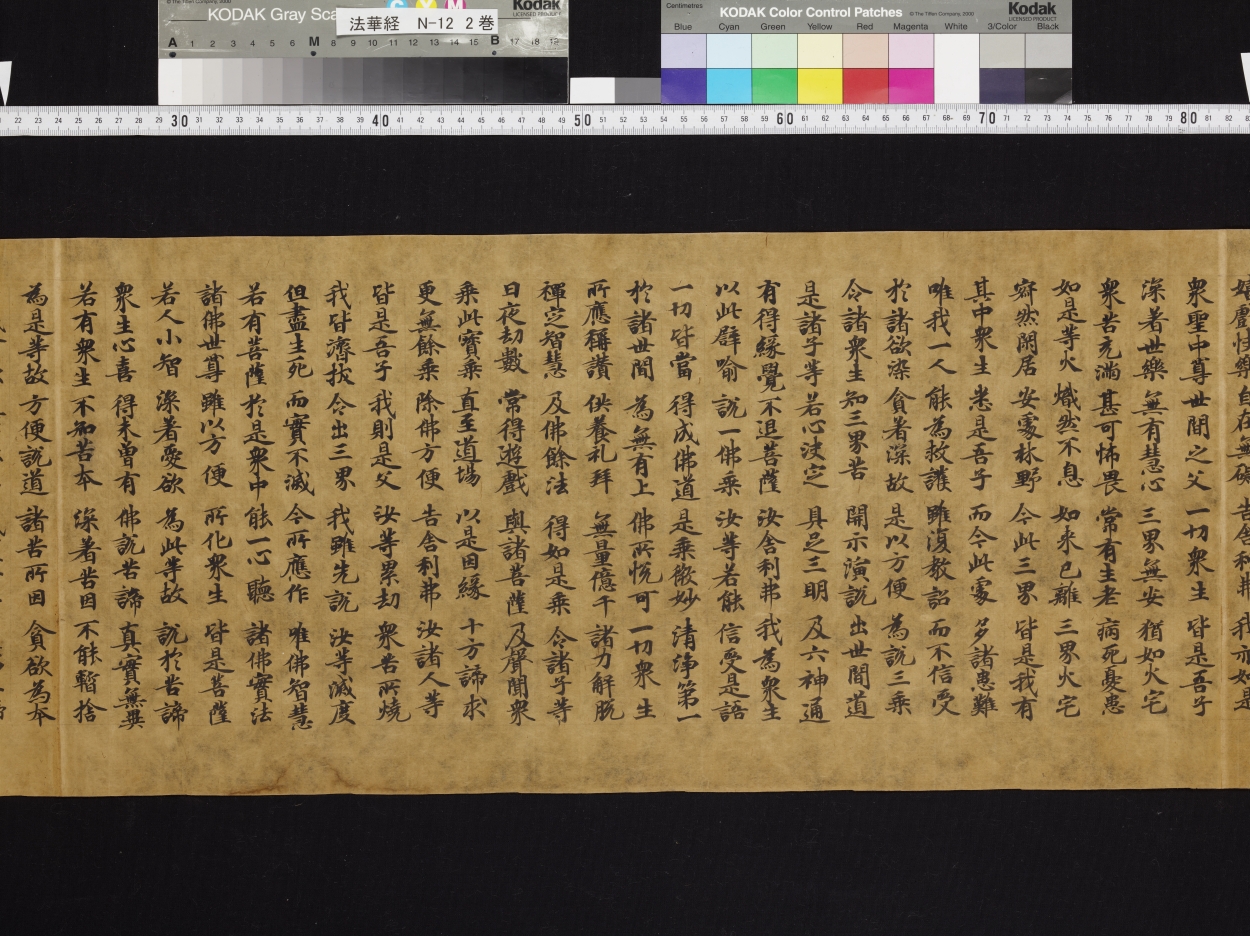 © The Tiffen Company, 2000
KODAK Gray Sca
Kodak
LICENSED PRODUCT
C Y M
法華経 N-12 2巻
A 1 2 3 4 5 6 M 8 9 10 11 12 13 14 15 B 17 18 19
Centimetres
KODAK Color Control Patches
© The Tiffen Company, 2000
Kodak
LICENSED PRODUCT
Blue Cyan Green Yellow Red Magenta White 3/Color Black
22 23 24 25 26 27 28 29 30 31 32 33 34 35 36 37 38 39 40 41 42 43 44 45 46 47 48 49 50 51 52 53 54 55 56 57 58 59 60 61 62 63 64 65 66 67 68 69 70 71 72 73 74 75 76 77 78 79 80 81 82
嬉戯快樂 自在無礙 告舍利弗 我亦如是
衆聖中尊 世間之父 一切衆生 皆是吾子
深著世樂 無有慧心 三界無安 猶如火宅
衆苦充滿 甚可怖畏 常有生老 病死憂患
如是等火 熾然不息 如来已離 三界火宅
寂然閑居 安處林野 今此三界 皆是我有
其中衆生 悉是吾子 而今此處 多諸患難
唯我一人 能為救護 雖復教詔 而不信受
於諸欲染 貪著深故 是以方便 為說三乗
令諸衆生 知三界苦 開示演說 出世間道
是諸子等 若心决定 具足三明 及六神通
有得緣覺 不退菩薩 汝舍利弗 我為衆生
以此辟喻 說一佛乗 汝等若能 信受是語
一切皆當 得成佛道 是乗微妙 清淨第一
於諸世間 為無有上 佛所悅可 一切衆生
所應稱讃 供養礼拜 無量億千 諸力解脫
禪定智慧 及佛餘法 得如是乗 令諸子等
日夜劫數 常得遊戲 與諸菩薩 及聲聞衆
乗此寳乗 直至道場 以是因緣 十方諦求
更無餘乗 除佛方便 告舍利弗 汝諸人等
皆是吾子 我則是父 汝等累劫 衆苦所燒
我皆濟拔 令出三界 我雖先說 汝等滅度
但盡生死 而實不滅 今所應作 唯佛智慧
若有菩薩 於是衆中 能一心聽 諸佛實法
諸佛世尊 雖以方便 所化衆生 皆是菩薩
若人小智 深著愛欲 為此等故 說於苦諦
衆生心喜 得未曾有 佛說苦諦 真實無異
若有衆生 不知苦本 深著苦因 不能暫捨
為是等故 方便說道 諸苦所因 貪欲為本